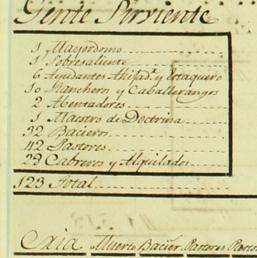 Gente Sirviente
1 Mayordomo
1 Sobresaliente
6 Ayudantes y
10 Mancheros y Caballerangos
2 Abentadores
1 Maestro de Doctrina
32 Bacieros
42 Pastores
Cabreros y Alquilados
123 Total
Cria Muerto Bacier. Pastores